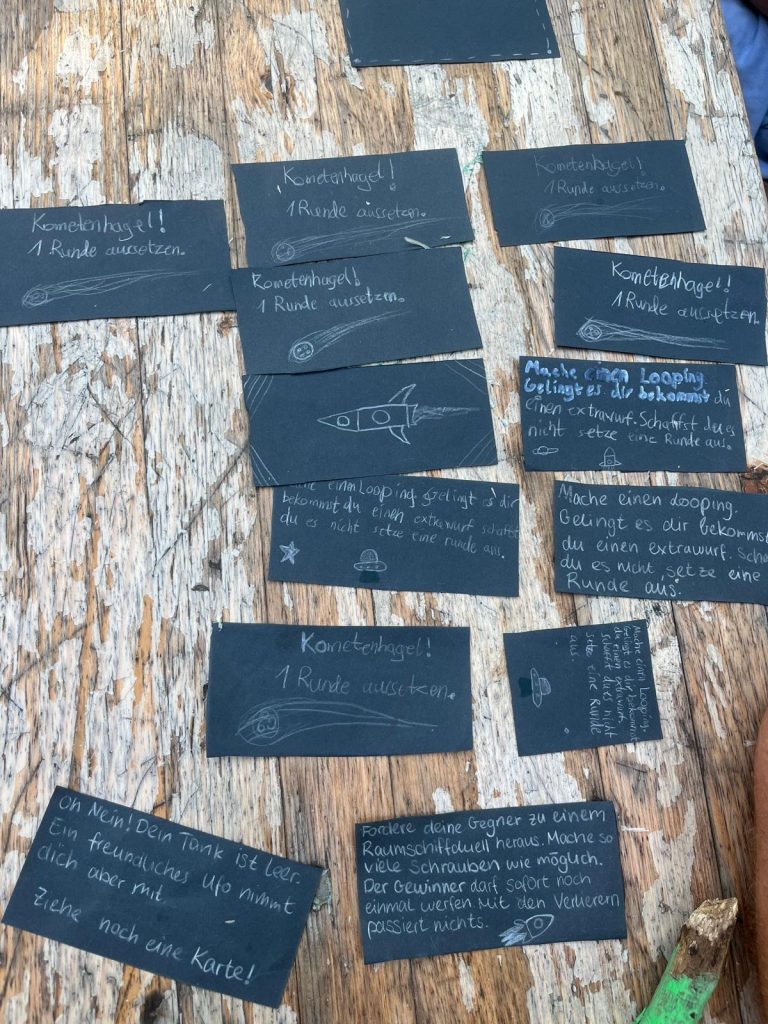 Kometenhagel!
1 Runde aussetzen.
Kometenhagel!
1 Runde aussetzen.
Kometenhagel!
1 Runde aussetzen.
Kometenhagel!
1 Runde aussetzen.
Kometenhagel!
1 Runde aussetzen.
Mache einen Looping.
Gelingt es dir bekommst du
einen extrawurf. Schaffst du es
nicht setze eine Runde aus.
einen Looping gelingt es dir
bekommst du einen extrawurf schaffst
du es nicht setze eine runde aus.
Mache einen Looping.
Gelingt es dir bekommst
du einen extrawurf. Scha
du es nicht, setze eine
Runde aus.
Kometenhagel!
1 Runde aussetzen.
Mache einen Looping
Gelingt es dir bekommst
du einen extrawurf.
schaffst du es nicht
setze eine Runde
aus.
Oh Nein! Dein Tank ist leer.
Ein freundliches Ufo nimmt
dich aber mit.
Ziehe noch eine Karte!
Fordere deine Gegner zu einem
Raumschiffduell heraus. Mache so
viele Schrauben wie möglich.
Der Gewinner darf sofort noch
einmal werfen Mit den Verlierern
passiert nichts.